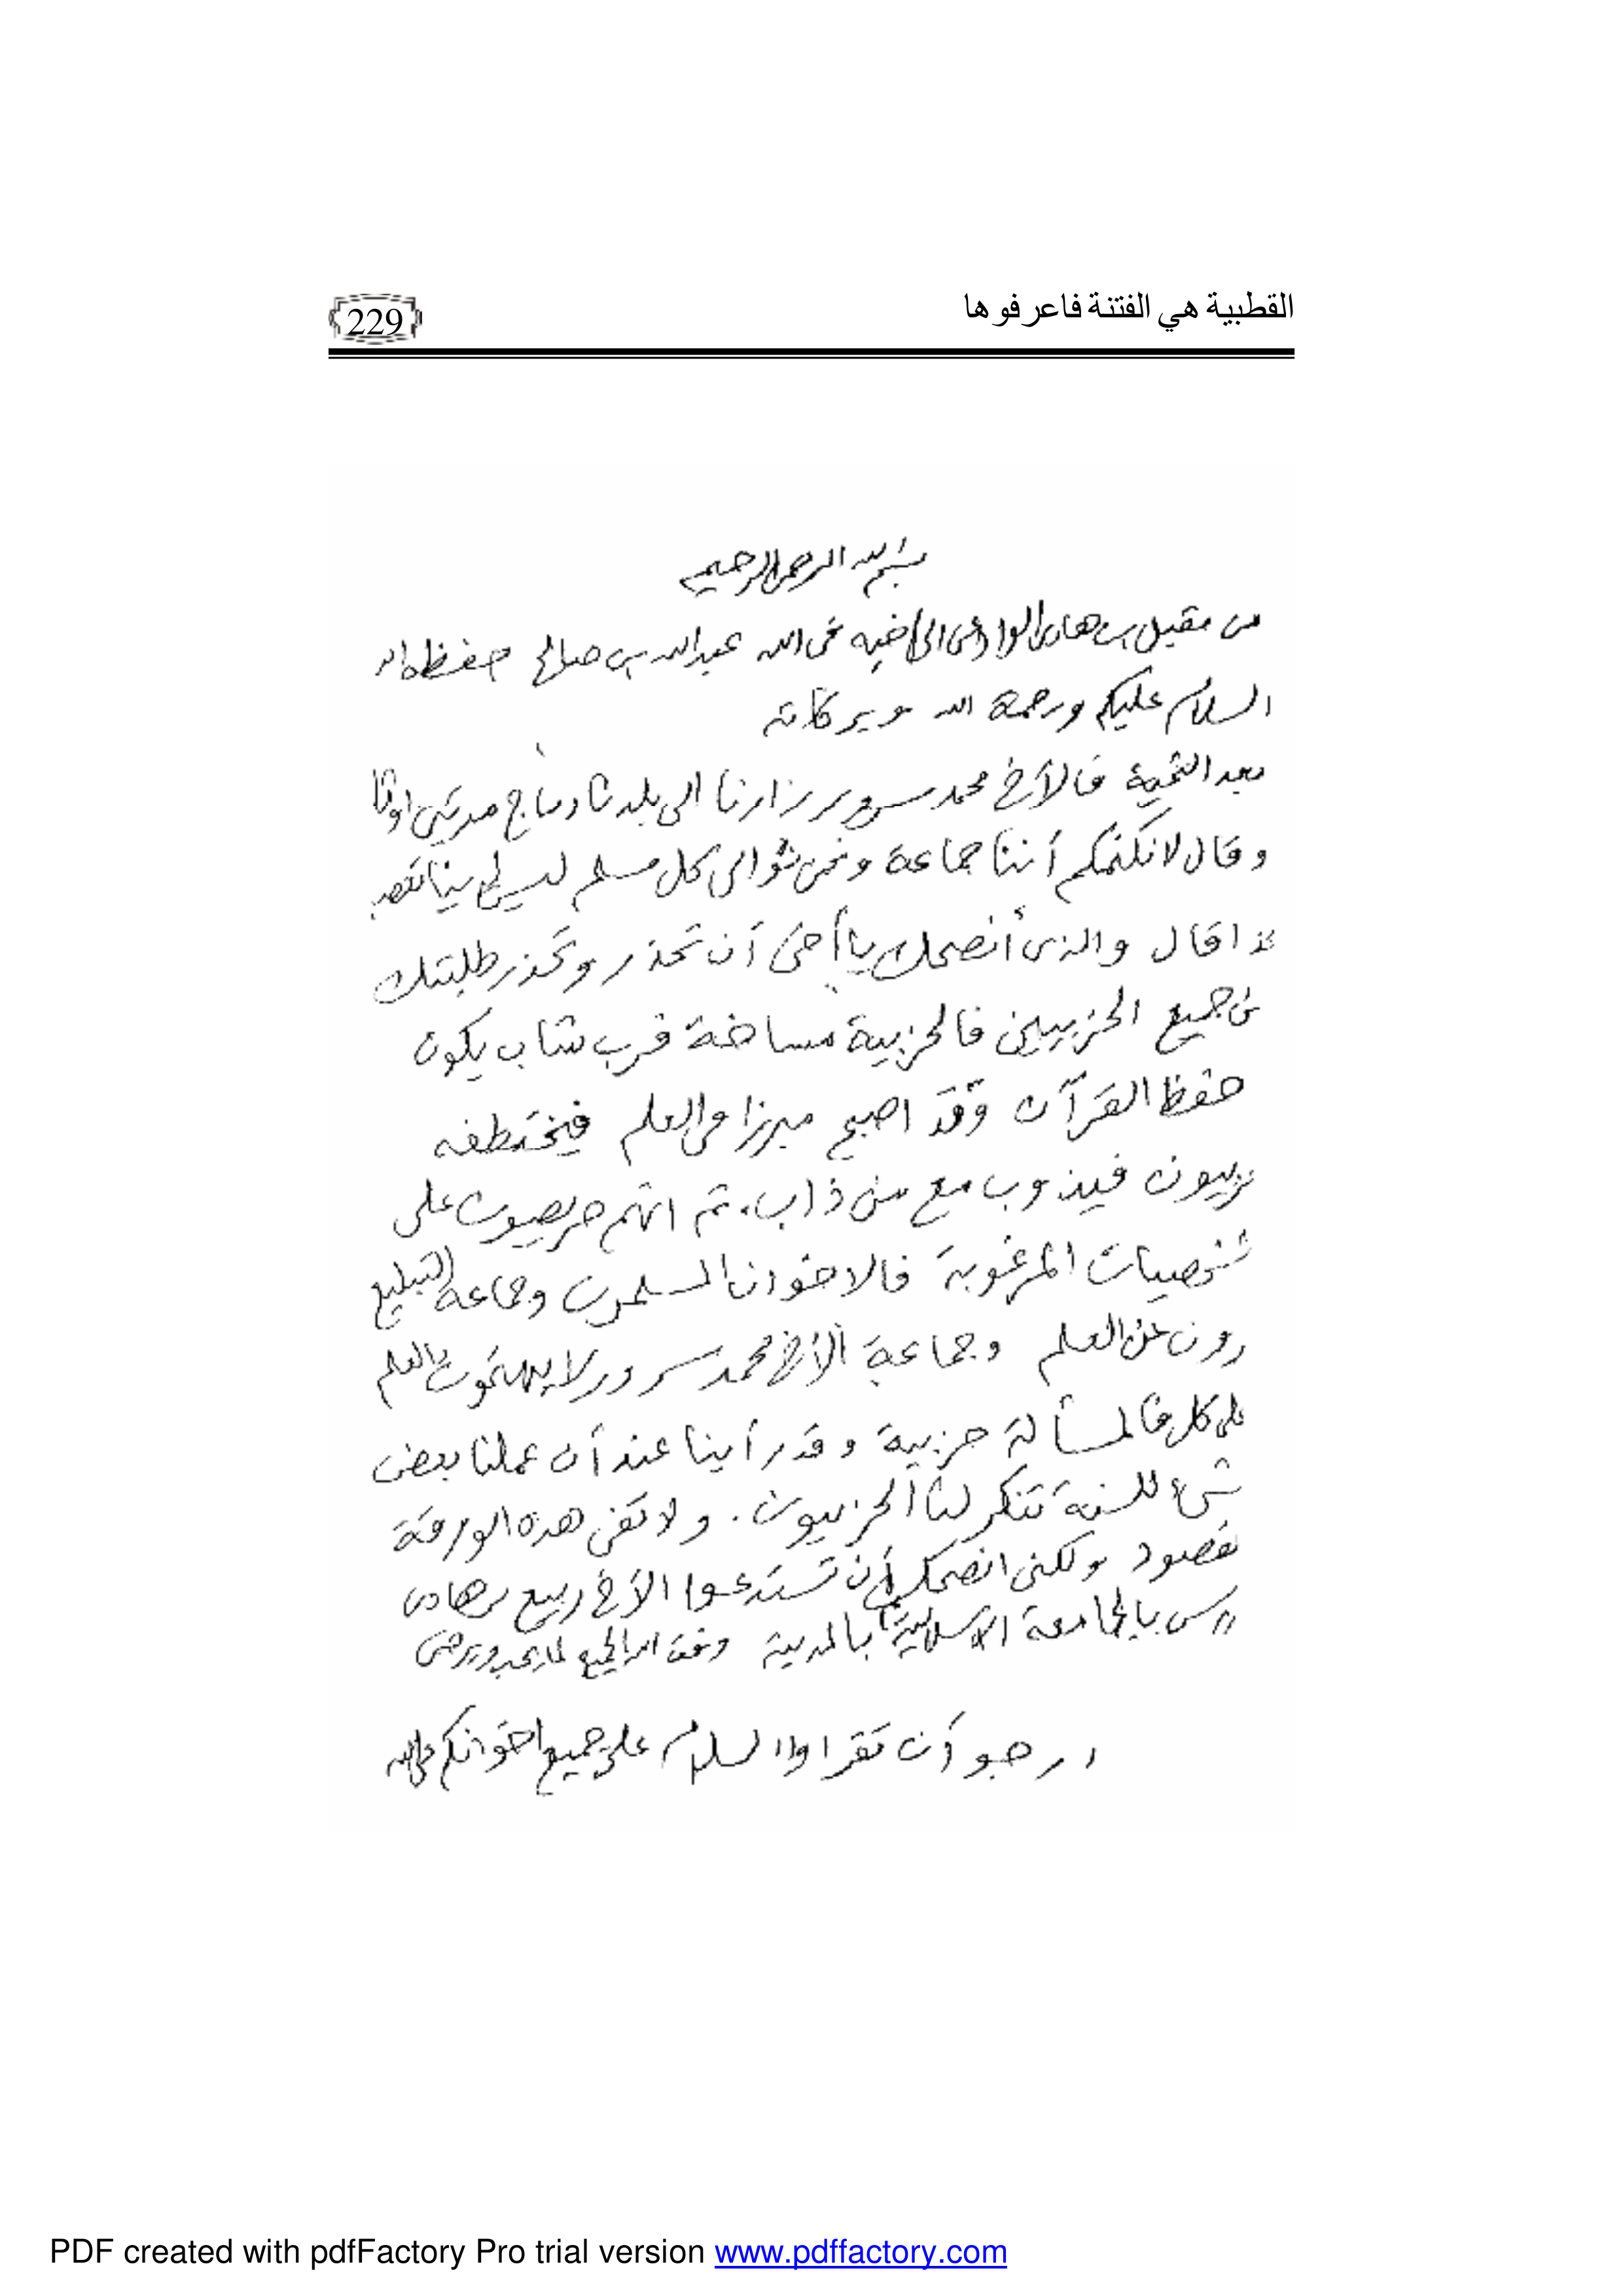 القطبية هي الفتنة فاعرفوها
229
بسم الله الرحمن الرحيم
من مقبل بن هادي الوادعي الى اخيه في الله عبدالله بن صالح حفظه الله
السلام عليكم ورحمة الله وبركاته
بعد التحية فالأخ محمد سرور زارنا الى بلدنا دماج مرتين
وقال لا نكتمكم أننا جماعة ونحن نوالي كل مسلم
ذا قال والذى أنصحك يا أخي أن تحذر وتحذر طلبتك
من جميع الحزبيين فالحزبية مساخة فرب شاب يكون
حفظ القرآن وقد اصبح مبرزا في العلم فيختطفه
زبيون فيذوب مع من ذاب، ثم انهم حريصون على
شخصيات المرغوبة فالاخوان المسلمون وجماعة التبليغ
رون عن العلم وجماعة الأخ محمد سرور لا يهتمون بالعلم
على كل فالمسألة حزبية وقد رأينا عند أن عملنا بعض
شيء للسنة تنكر لنا الحزبيون. ولا تفي هذه الورقة
قصود ولكني انصحكم أن تستدعوا الأخ ربيع بن هادى
رس بالجامعة الاسلامية بالمدينة وفق الله الجميع لما يحب ويرضى
ارجو أن تقراوا السلام على جميع اخوانكم في الله
PDF created with pdfFactory Pro trial version www.pdffactory.com